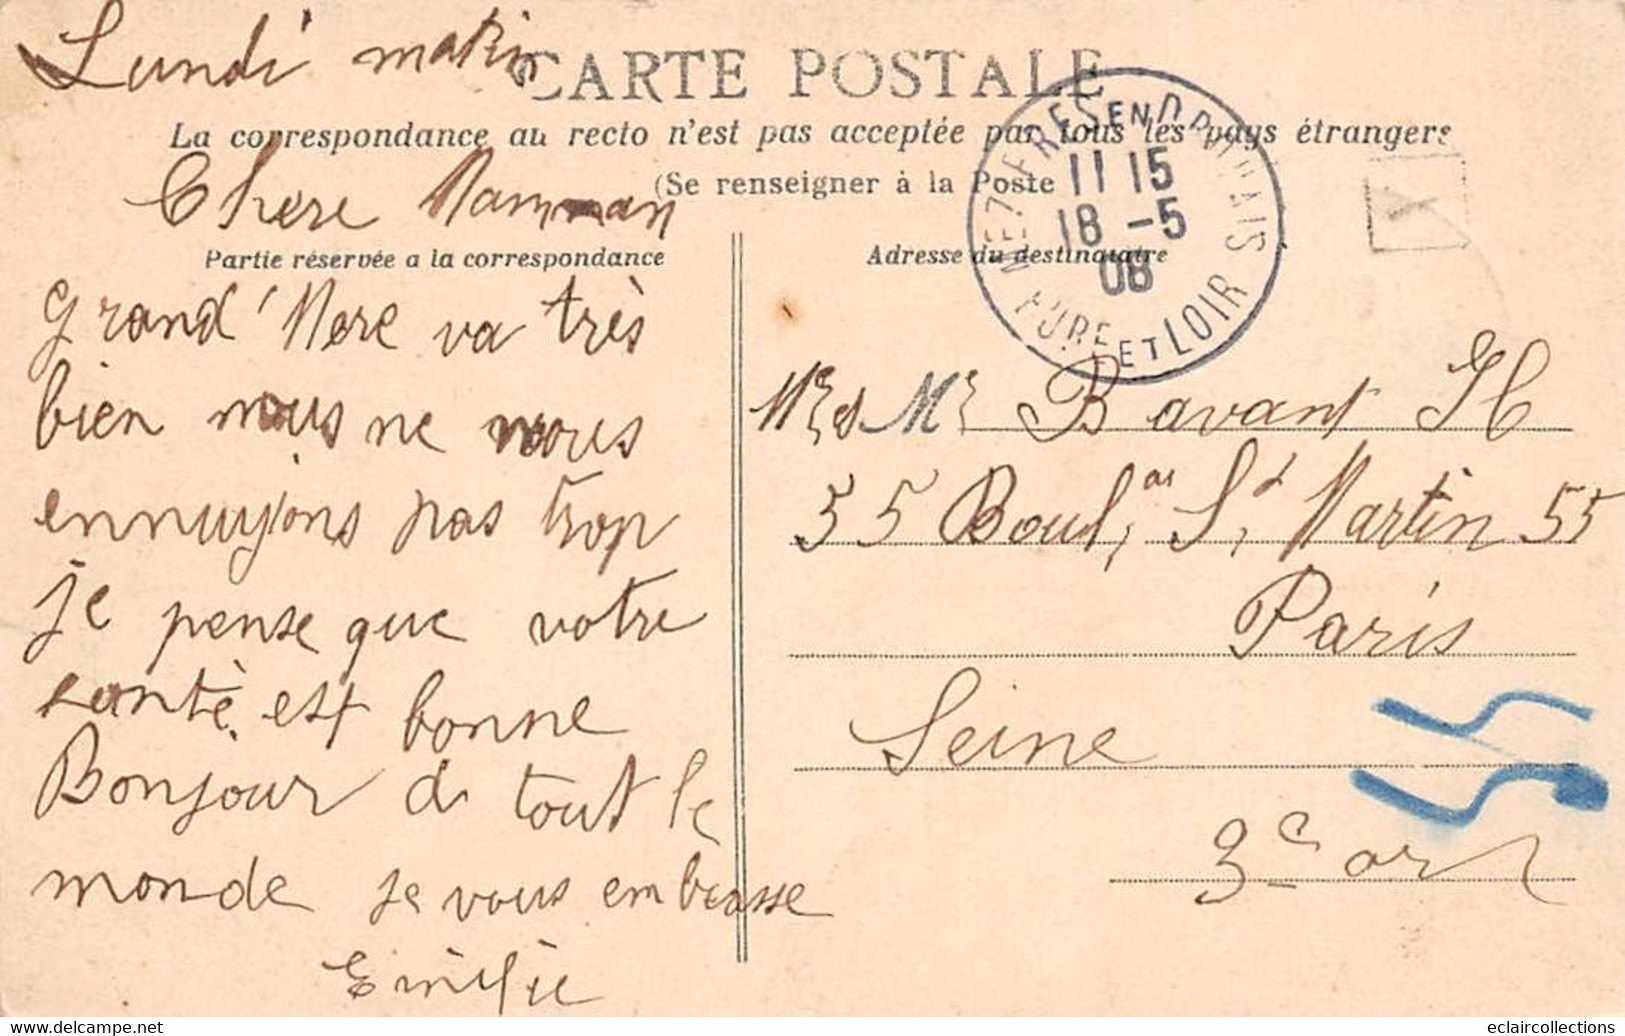 Lundi matin
CARTE POSTALE
La correspondance au recto n'est pas acceptée par tous les pays étrangers
(Se renseigner à la Poste
Chere Maman
Partie réservée a la correspondance
grand'Mere va très
bien nous ne nous
ennuyions pas trop
je pense que votre
santè est bonne
Bonjour à tout le
monde je vous embrasse
Emilie
Adresse du destinataire
EN
11 15
18 -5
08
EURE ET LOIR
Mr et Me Bavant H
55 Boul. St Martin 55
Paris
Seine
3e arr
Delcampe.net
eclaircollections